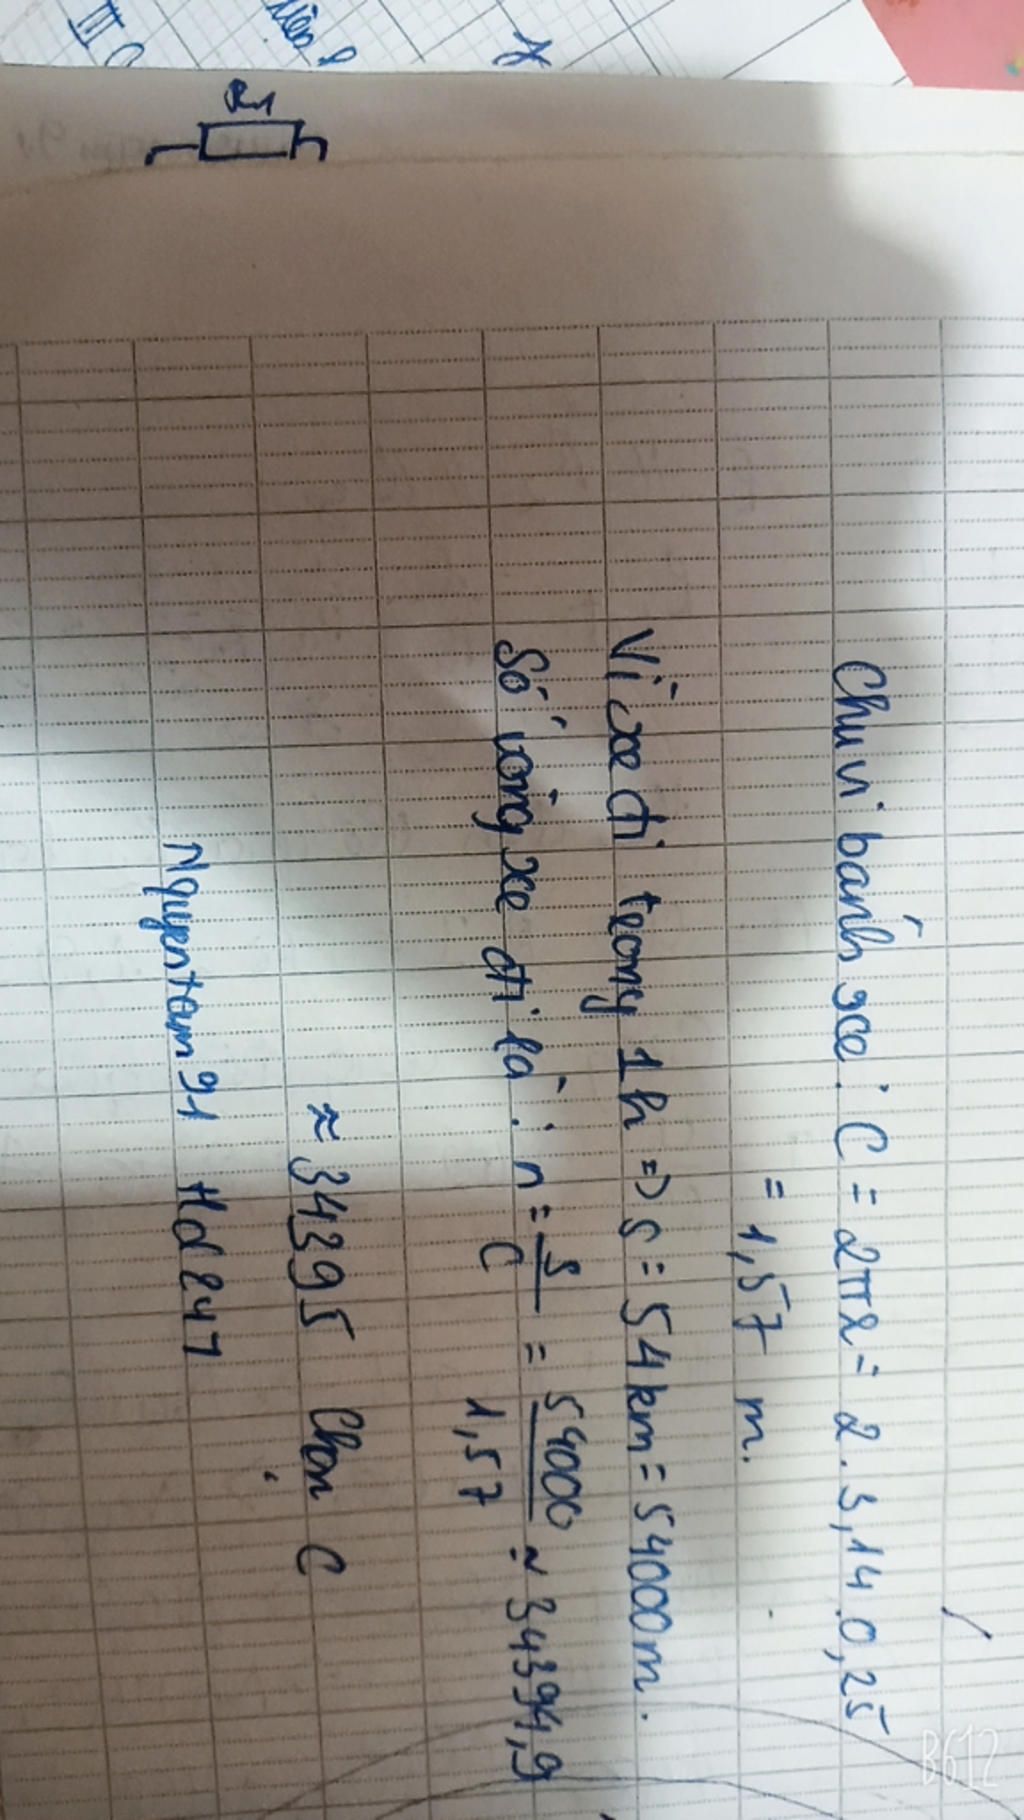 Chu vi bánh xe: C = 2πr = 2. 3,14. 0,25
= 1,57 m.
Vì xe đi trong 1h => s = 54km = 54000m.
Số vòng xe đi là: n = s/C = 54000/1,57 ≈ 34394,9
≈ 34395 Chọn C
Nguyentam91 Hd247
R1
III
B612